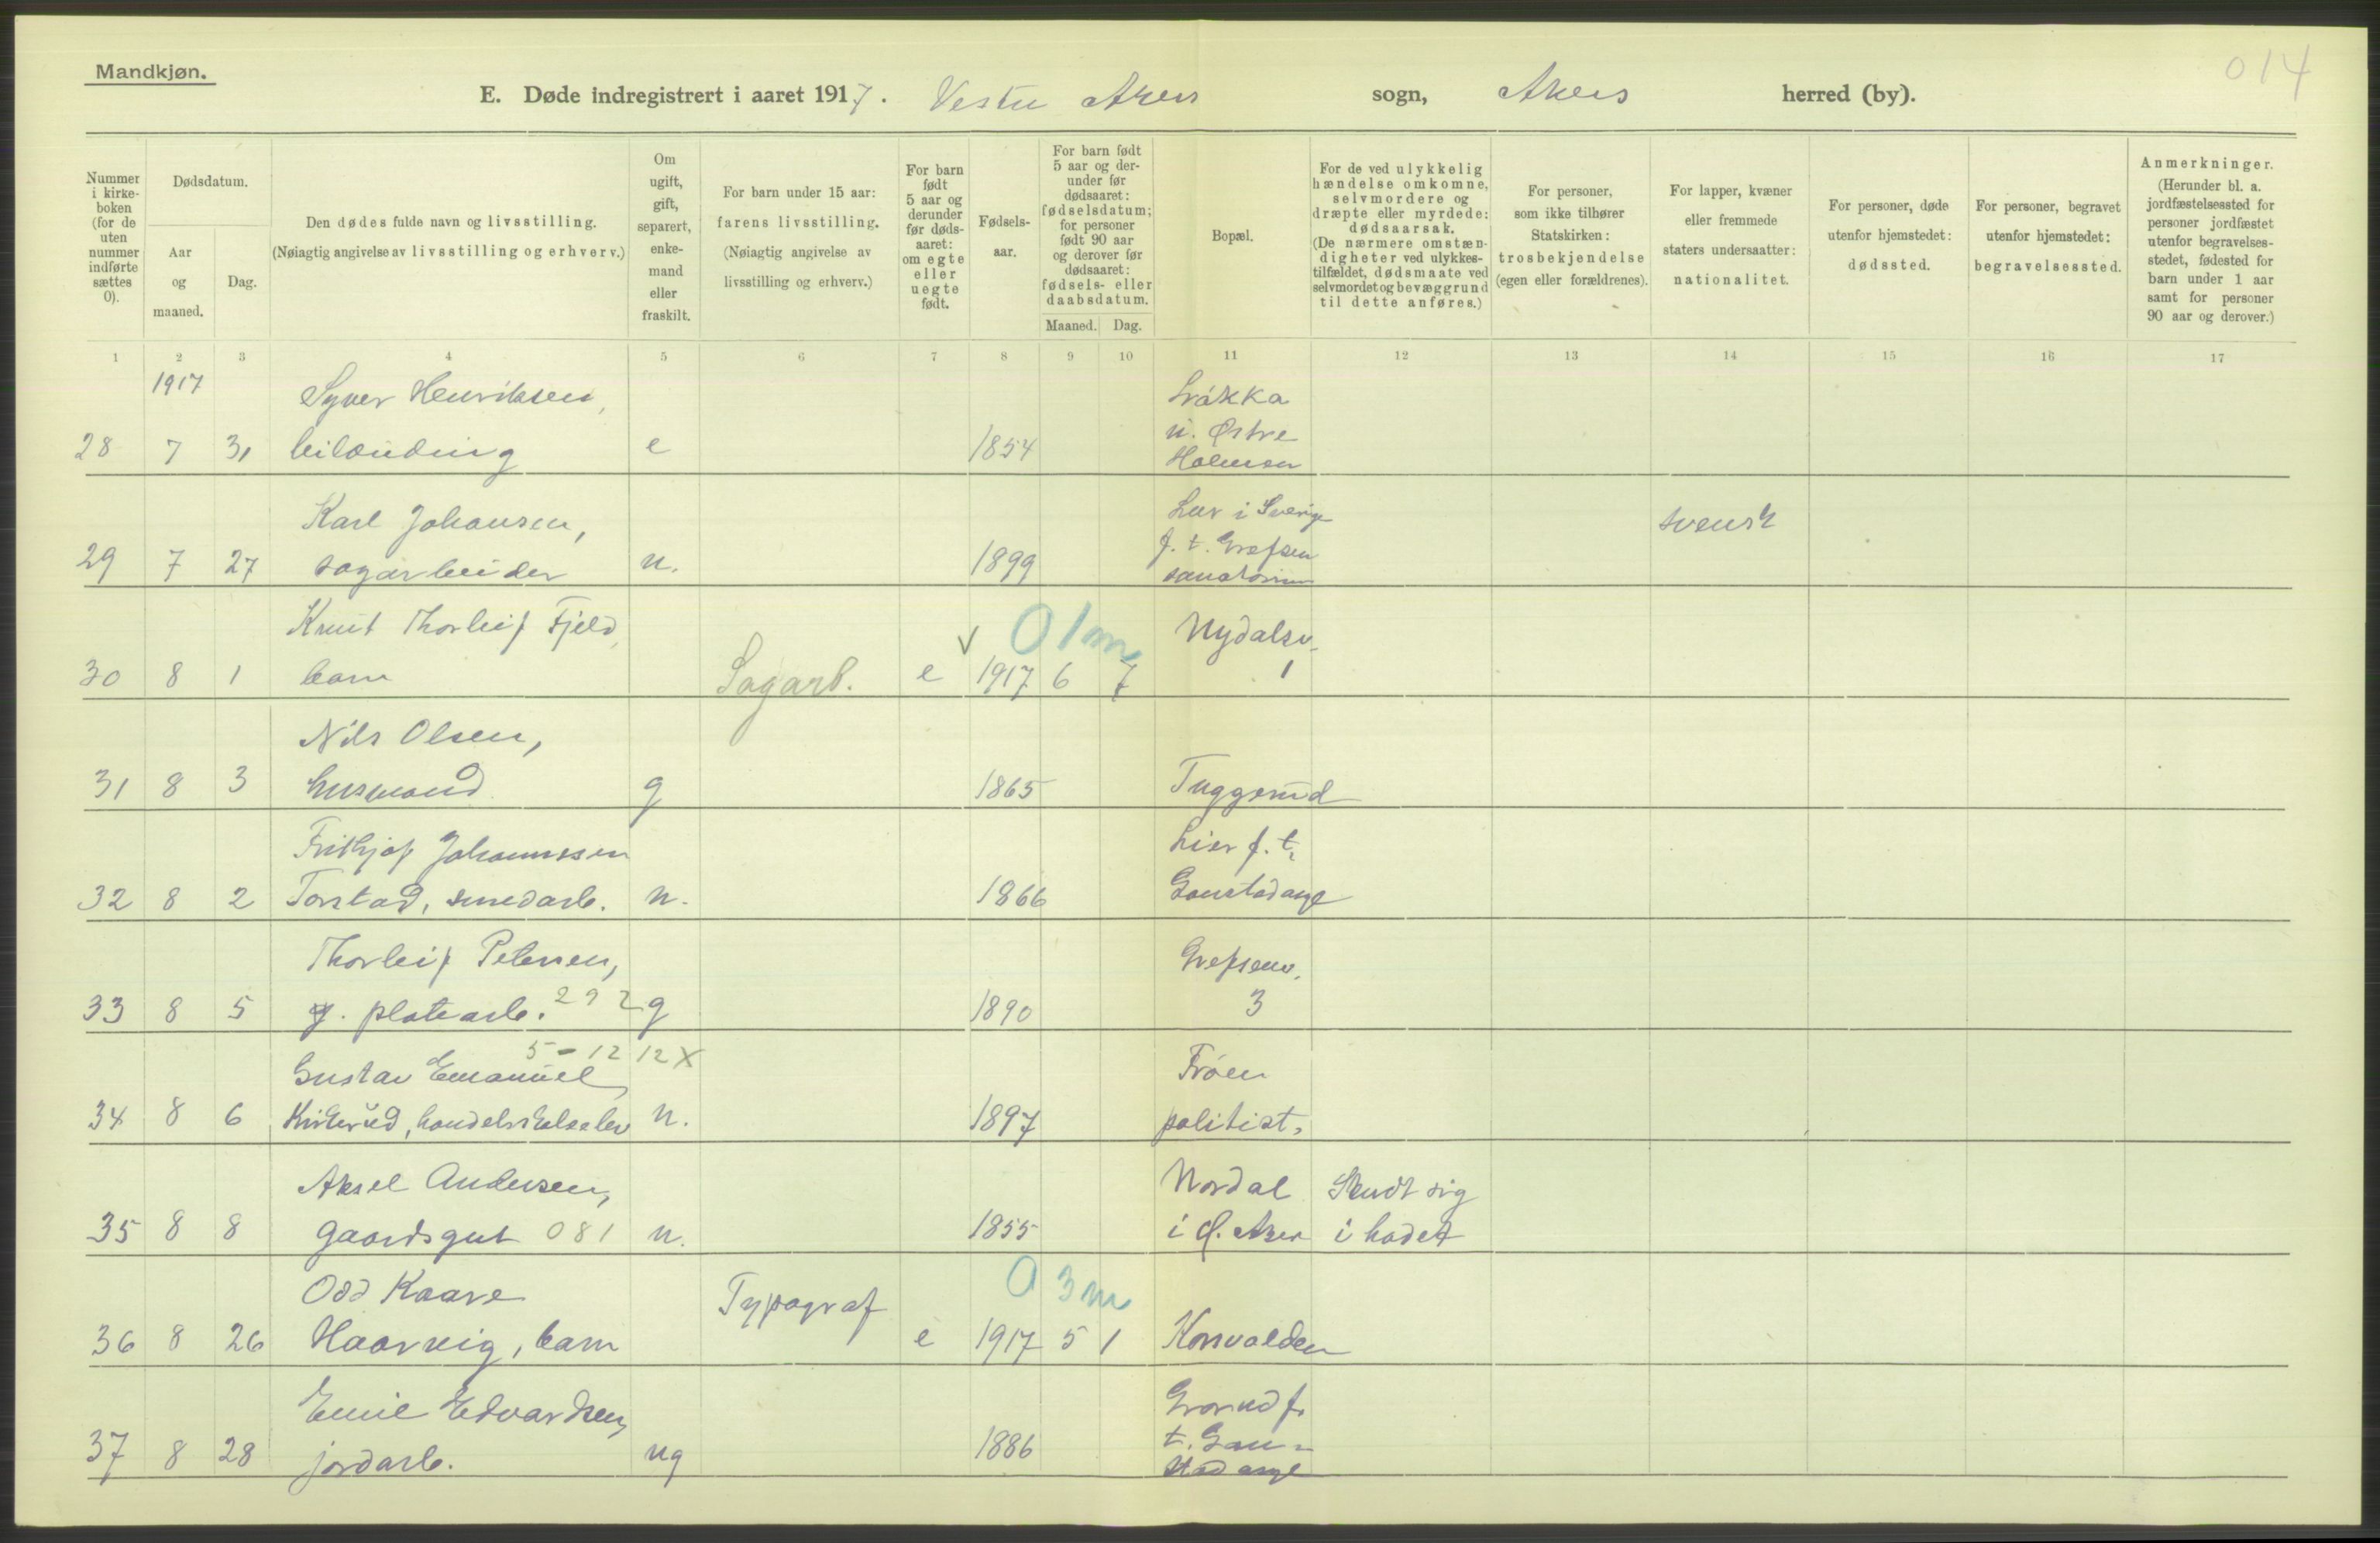 Mandkjøn.
014
E. Døde indregistrert i aaret 1917. Vestre Akers sogn, Akers herred (by).
Nummer i kirke-boken (for de uten nummer indførte sættes 0).
Dødsdatum.
Aar og maaned.
Dag.
Den dødes fulde navn og livsstilling.
(Nøiagtig angivelse av livsstilling og erhverv.)
Om ugift, gift, separert, enke-mand eller fraskilt.
For barn under 15 aar: farens livsstilling.
(Nøiagtig angivelse av livsstilling og erhverv.)
For barn født 5 aar og derunder før døds-aaret: om egte eller uegte født.
Fødsels-aar.
For barn født 5 aar og der-under før dødsaaret: fødselsdatum; for personer født 90 aar og derover før dødsaaret: fødsels- eller daabsdatum.
Maaned. Dag.
Bopæl.
For de ved ulykkelig hændelse omkomne, selvmordere og dræpte eller myrdede: dødsaarsak.
(De nærmere omstæn-digheter ved ulykkes-tilfældet, dødsmaate ved selvmordet og bevæggrund til dette anføres.)
For personer, som ikke tilhører Statskirken: trosbekjendelse (egen eller forældrenes).
For lapper, kvæner eller fremmede staters undersaatter: nationalitet.
For personer, døde utenfor hjemstedet: dødssted.
For personer, begravet utenfor hjemstedet: begravelsessted.
Anmerkninger.
(Herunder bl. a. jordfæstelsessted for personer jordfæstet utenfor begravelses-stedet, fødested for barn under 1 aar samt for personer 90 aar og derover.)
1 2 3 4 5 6 7 8 9 10 11 12 13 14 15 16 17
1917
Syver Henriksen,
28 7 31 e 1854
u. Østre
Karl Johansen,
29 7 27 sagarbeider u. 1899
i Sverige
f. t. Grefsen
sanatorium
svensk
Knut Thorleif Fjeld,
30 8 1 barn Sagarb. e V 1917 6 7
01m
Nydalsv.
1
Nils Olsen,
31 8 3 husmand g 1865 Tuggerud
Frithjof Johannessen
32 8 2 Torstad, smedarb. u. 1866
Lier f. t.
Gaustad asyl
Thorleif Petersen,
33 8 5 g. platearb. 292 g 1890
Grefsenv.
3
5-12 12X
Gustav Emanuel
34 8 6 Kirkerud, handelsskoleelev u. 1897
Frøen
politist.
Aksel Andersen,
35 8 8 gaardsgut 081 u. 1855
Nordal
i Ø. Aker
Skudt sig
i hodet
Odd Kaare
36 8 26 Haarvig, barn Typograf e 1917 5 1 Korsvolden
03m
Emil Edvardsen,
37 8 28 jordarb. ug 1886
Grorud f.
t. Gau-
stad asyl